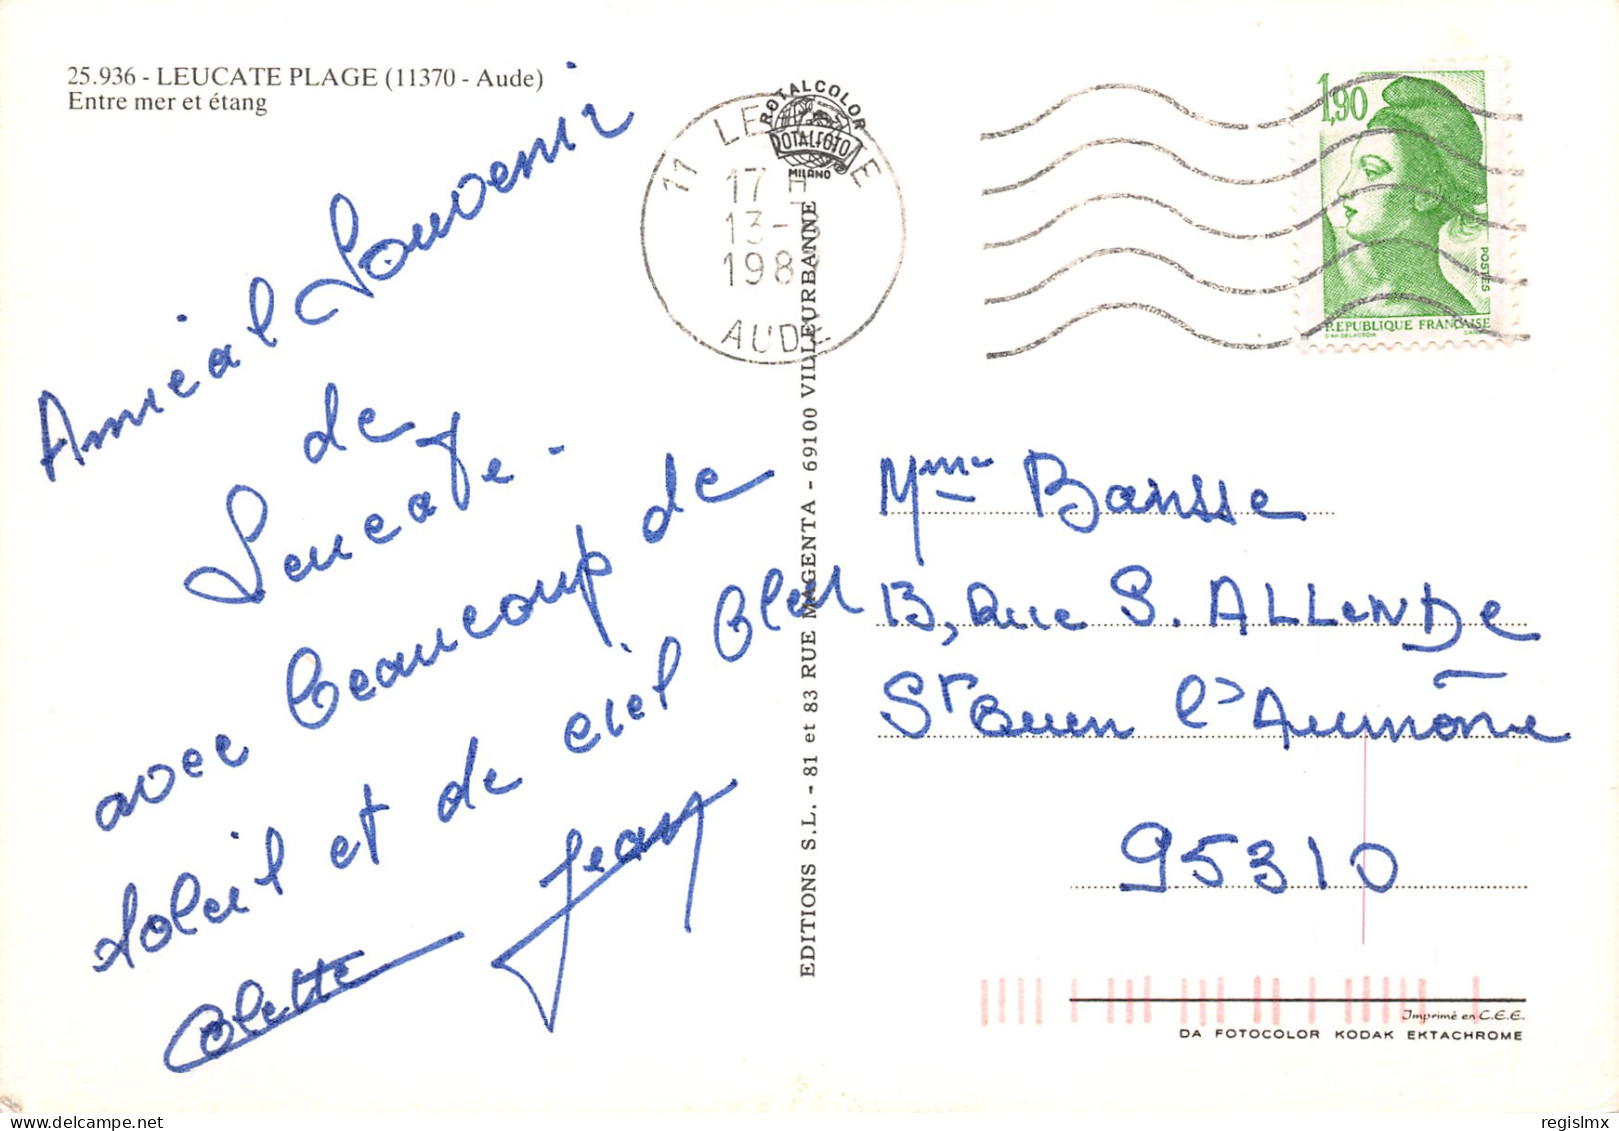 25.936 - LEUCATE PLAGE (11370 - Aude)
Entre mer et étang
Amical Souvenir
de
Leucate -
avec beaucoup de
soleil et de ciel bleu
Jean
Colette
11 LE
17 H
13 -
198
AUDE
ROTALCOLOR
ROTALFOTO
MILANO
EDITIONS S.L. - 81 et 83 RUE MAGENTA - 69100 VILLEURBANNE
1,90
POSTES
REPUBLIQUE FRANÇAISE
D'AP. DELACROIX
Mme Bansse
13, Rue S. ALLENDE
St Ouen l'Aumône
95310
Imprimé en C.E.E.
DA FOTOCOLOR KODAK EKTACHROME
regislmx